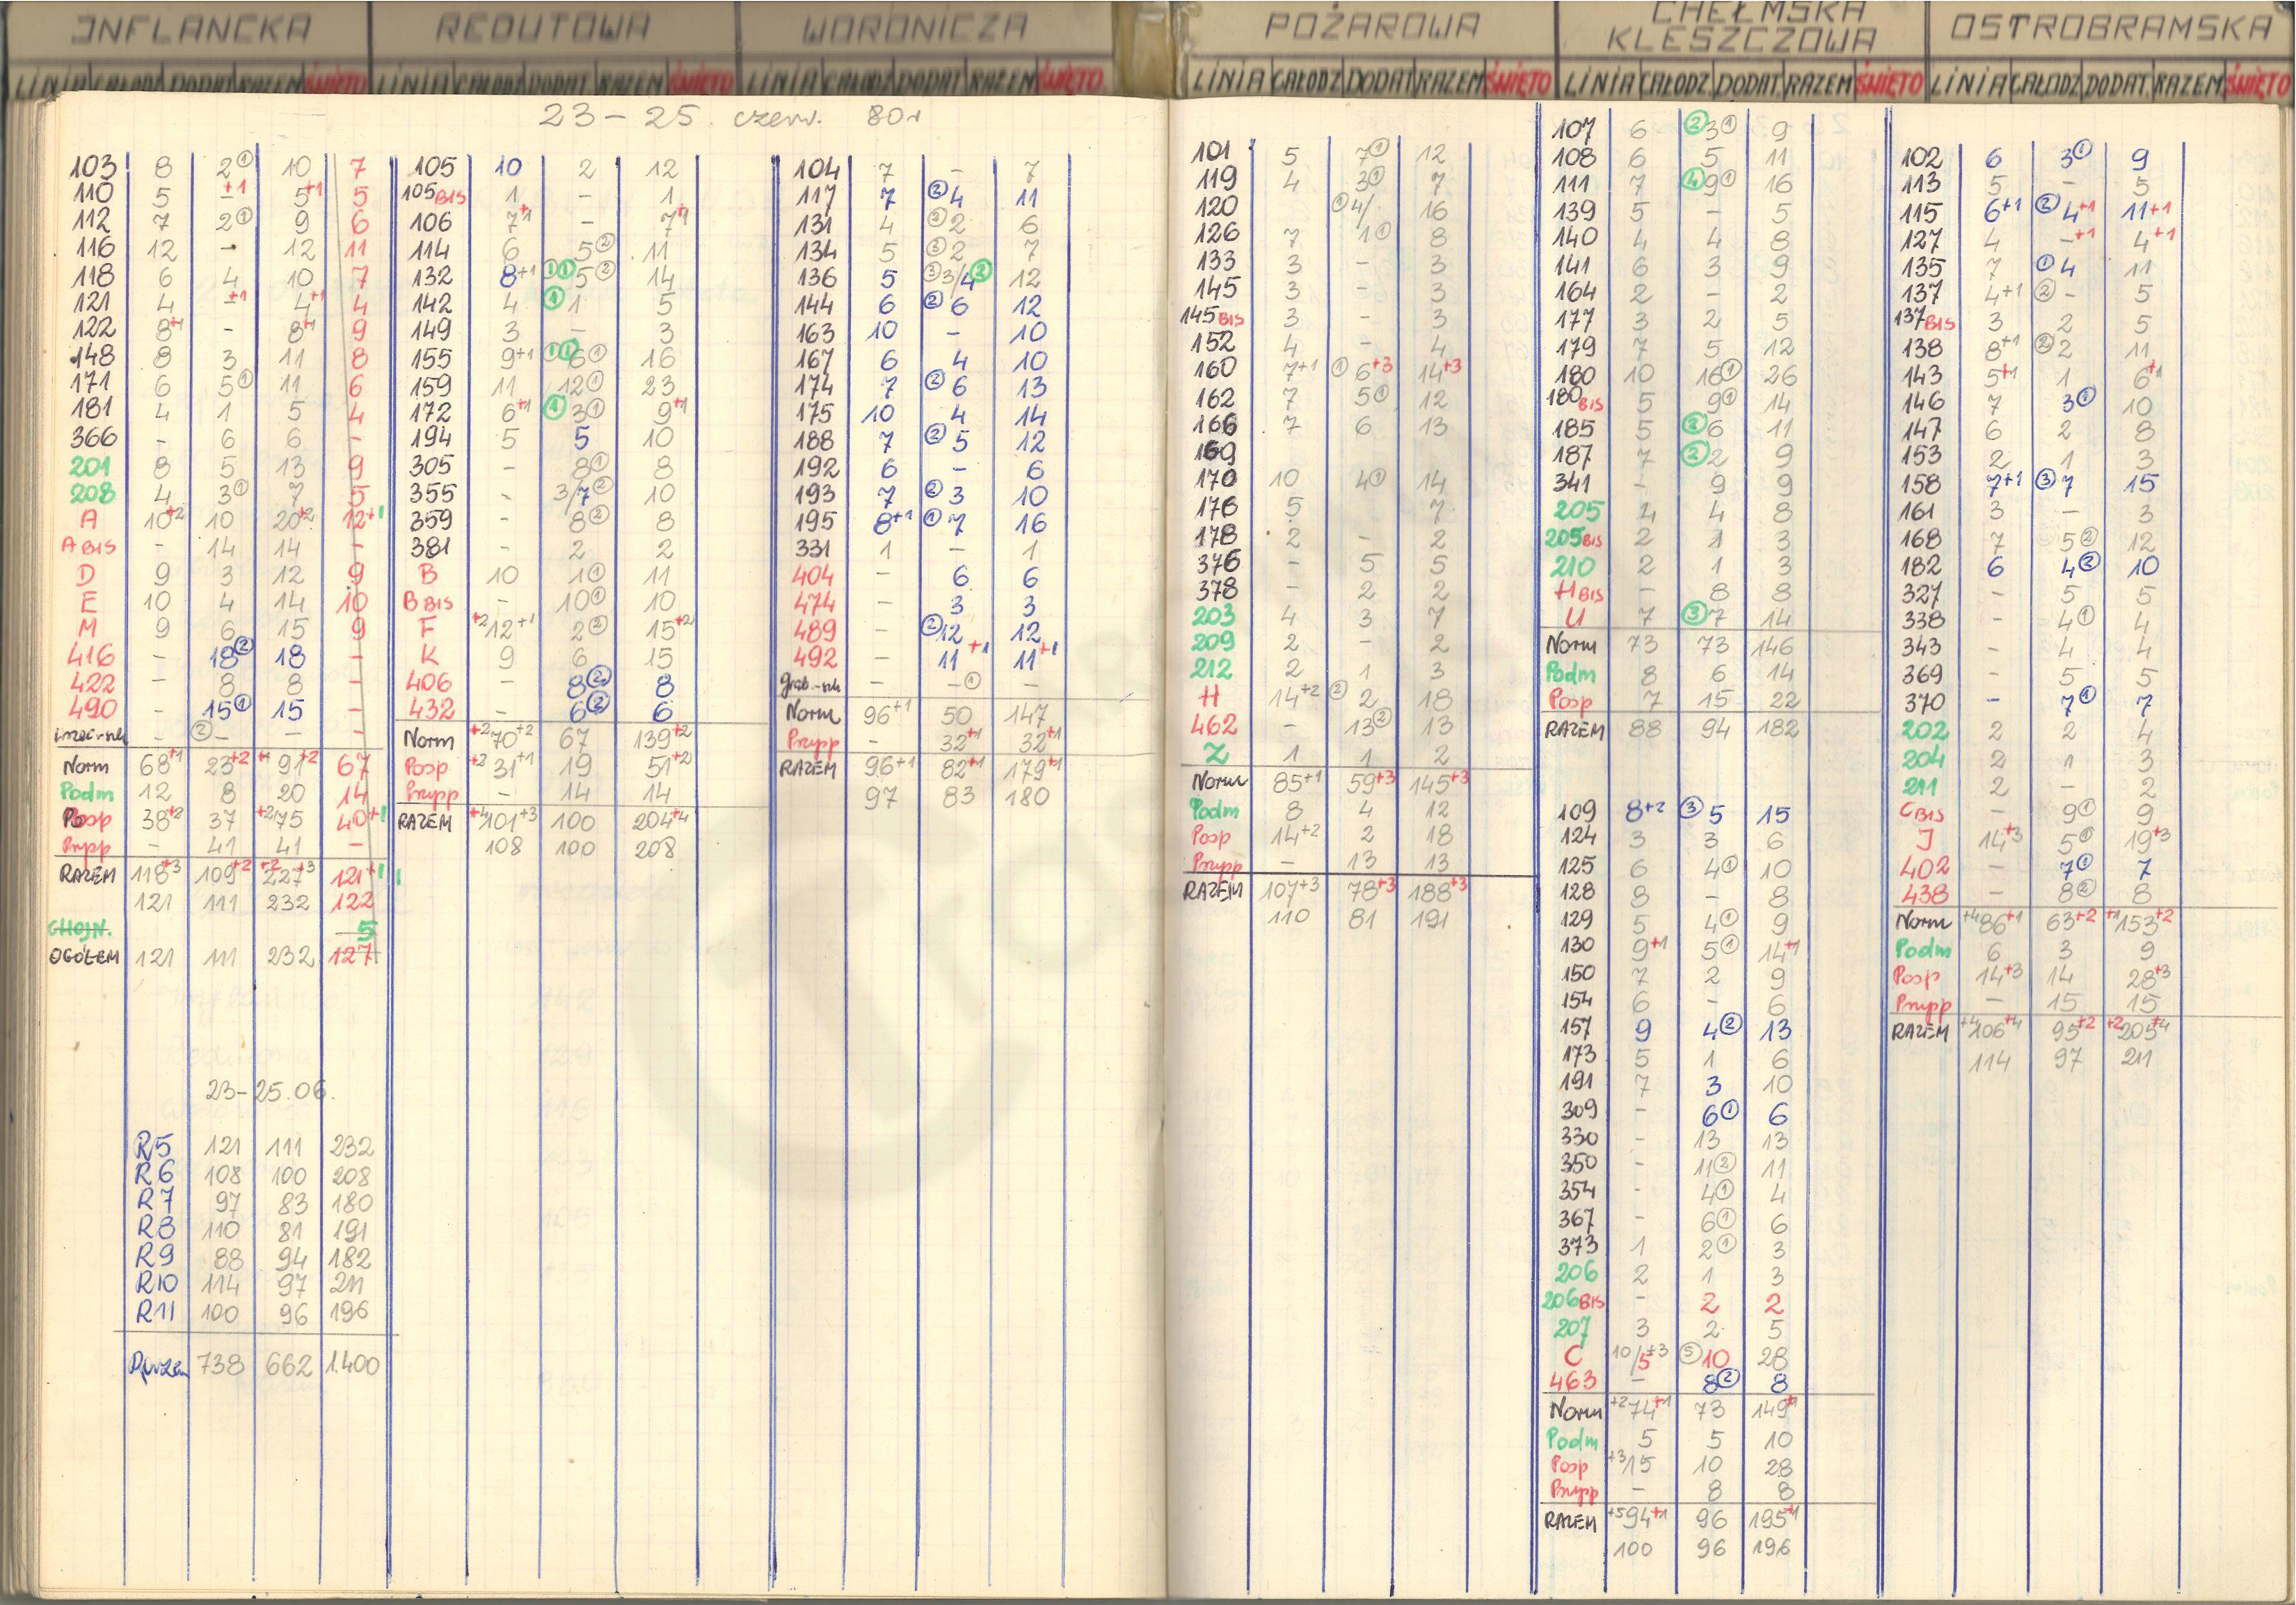 INFLANCKA
LINIA CAŁODZ DODAT RAZEM ŚWIĘTO
23-25. czerw. 80r
103 8 2① 10 7
110 5 -+1 5+1 5
112 7 2① 9 6
116 12 - 12 11
118 6 4 10 7
121 4 -+1 4+1 4
122 8+1 - 8+1 9
148 8 3 11 8
171 6 5① 11 6
181 4 1 5 4
366 - 6 6 -
201 8 5 13 9
208 4 3① 7 5
A 10+2 10 20+2 12+1
A BIS - 14 14 -
D 9 3 12 9
E 10 4 14 10
M 9 6 15 9
416 - 18② 18 -
422 - 8 8 -
490 - 15① 15 -
② - - -
Norm 68+1 23+2 +1 91+2 67
Podm 12 8 20 14
Posp 38+2 37 +2 75 40+1
Przypp - 41 41 -
RAZEM 118+3 109+2 +2 227+3 121+1
121 111 232 122
CHOJN. 5
OGÓŁEM 121 111 232 127
23-25.06.
R5 121 111 232
R6 108 100 208
R7 97 83 180
R8 110 81 191
R9 88 94 182
R10 114 97 211
R11 100 96 196
738 662 1.400
REDUTOWA
LINIA CAŁODZ DODAT RAZEM ŚWIĘTO
105 10 2 12
105 BIS 1 - 1
106 7+1 - 7+1
114 6 5② 11
132 8+1 ①① 5② 14
142 4 ① 1 5
149 3 - 3
155 9+1 ①① 6① 16
159 11 12① 23
172 6+1 ① 3① 9+1
194 5 5 10
305 - 8① 8
355 - 3/7② 10
359 - 8② 8
381 - 2 2
B 10 1① 11
B BIS - 10① 10
F +2 12+1 2② 15+2
K 9 6 15
406 - 8② 8
432 - 6② 6
Norm +2 70+2 67 139+2
Posp +2 31+1 19 51+2
Przypp - 14 14
RAZEM +4 101+3 100 204+4
108 100 208
WORONICZA
LINIA CAŁODZ DODAT RAZEM ŚWIĘTO
104 7 - 7
117 7 ② 4 11
131 4 ② 2 6
134 5 ③ 2 7
136 5 ③ 3/4 ② 12
144 6 ② 6 12
163 10 - 10
167 6 4 10
174 7 ② 6 13
175 10 4 14
188 7 ② 5 12
192 6 - 6
193 7 ② 3 10
195 8+1 ① 7 16
331 1 - 1
404 - 6 6
474 - 3 3
489 - ② 12 12
492 - 11+1 11+1
- -① -
Norm 96+1 50 147
Przypp - 32+1 32+1
RAZEM 96+1 82+1 179+1
97 83 180
POŻAROWA
LINIA CAŁODZ DODAT RAZEM ŚWIĘTO
101 5 7① 12
119 4 3① 7
120 ① 4/ 16
126 7 1① 8
133 3 - 3
145 3 - 3
145 BIS 3 - 3
152 4 - 4
160 7+1 ① 6+3 14+3
162 7 5① 12
166 7 6 13
169
170 10 4① 14
176 5 7
178 2 - 2
376 - 5 5
378 - 2 2
203 4 3 7
209 2 - 2
212 2 1 3
H 14+2 ② 2 18
462 - 13② 13
Z 1 1 2
Norm 85+1 59+3 145+3
Podm 8 4 12
Posp 14+2 2 18
Przypp - 13 13
RAZEM 107+3 78+3 188+3
110 81 191
CHEŁMSKA
KLESZCZOWA
LINIA CAŁODZ DODAT RAZEM ŚWIĘTO
107 6 ② 3① 9
108 6 5 11
111 7 ④ 9① 16
139 5 - 5
140 4 4 8
141 6 3 9
164 2 - 2
177 3 2 5
179 7 5 12
180 10 16① 26
180 BIS 5 9① 14
185 5 ② 6 11
187 7 ② 2 9
341 - 9 9
205 4 4 8
205 BIS 2 1 3
210 2 1 3
H BIS - 8 8
U 7 ③ 7 14
Norm 73 73 146
Podm 8 6 14
Posp 7 15 22
RAZEM 88 94 182
109 8+2 ③ 5 15
124 3 3 6
125 6 4① 10
128 8 - 8
129 5 4① 9
130 9+1 5① 14+1
150 7 2 9
154 6 - 6
157 9 4② 13
173 5 1 6
191 7 3 10
309 - 6① 6
330 - 13 13
350 - 11② 11
354 - 4① 4
367 - 6① 6
373 1 2① 3
206 2 1 3
206 BIS - 2 2
207 3 2 5
C 10/5+3 ⑤ 10 28
463 - 8② 8
Norm +2 74+1 73 149+1
Podm 5 5 10
Posp +3 15 10 28
Przypp - 8 8
RAZEM +5 94+1 96 195+1
100 96 196
OSTROBRAMSKA
LINIA CAŁODZ DODAT RAZEM ŚWIĘTO
102 6 3① 9
113 5 - 5
115 6+1 ② 4+1 11+1
127 4 -+1 4+1
135 7 ① 4 11
137 4+1 ② - 5
137 BIS 3 2 5
138 8+1 ② 2 11
143 5+1 1 6+1
146 7 3① 10
147 6 2 8
153 2 1 3
158 7+1 ③ 7 15
161 3 - 3
168 7 5② 12
182 6 4② 10
327 - 5 5
338 - 4① 4
343 - 4 4
369 - 5 5
370 - 7① 7
202 2 2 4
204 2 1 3
211 2 - 2
C BIS - 9① 9
J 14+3 5① 19+3
402 - 7① 7
438 - 8② 8
Norm +4 86+1 63+2 +1 153+2
Podm 6 3 9
Posp 14+3 14 28+3
Przypp - 15 15
RAZEM +4 106+4 95+2 +2 205+4
114 97 211